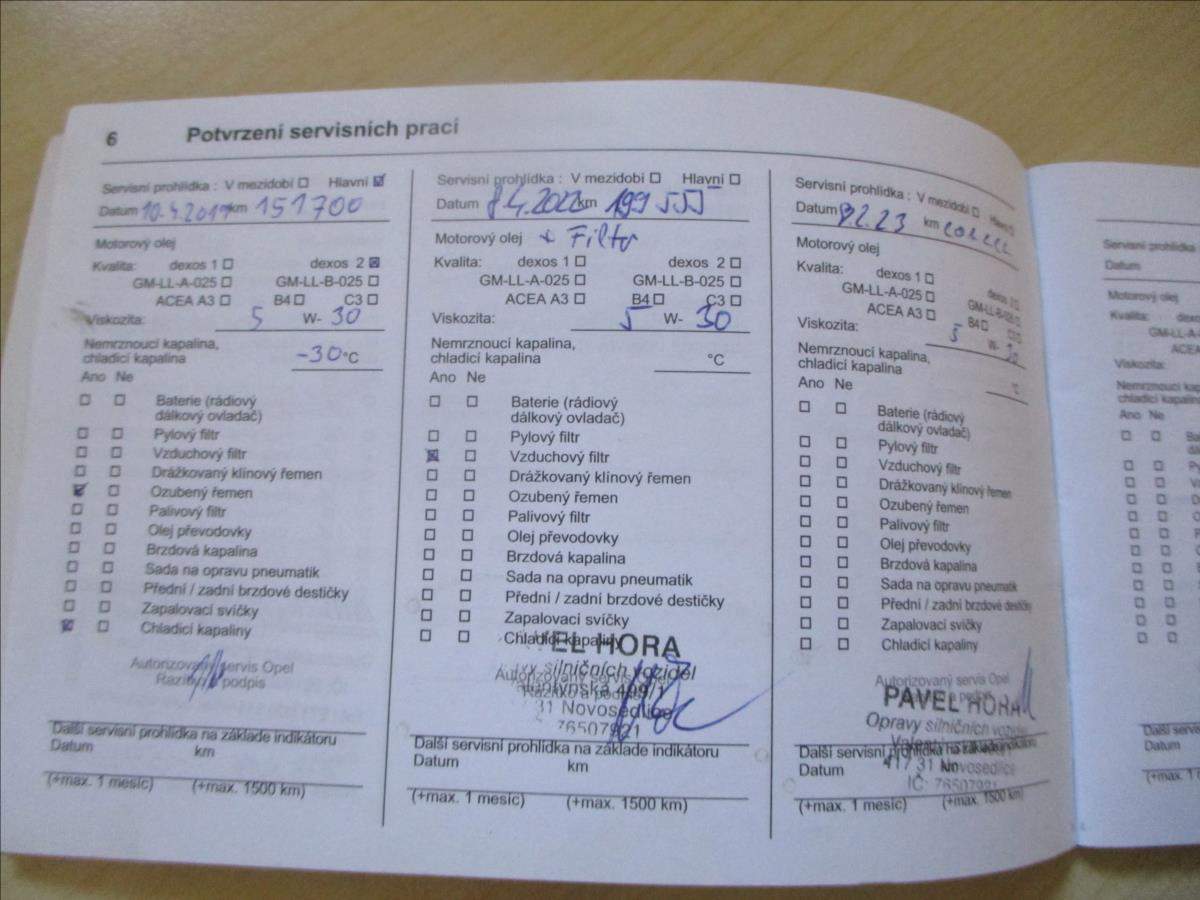 6 Potvrzení servisních prací
Servisní prohlídka : V mezidobí Hlavní
Datum 10.4.2019 km 151700
Motorový olej
Kvalita: dexos 1 dexos 2
GM-LL-A-025 GM-LL-B-025
ACEA A3 B4 C3
Viskozita: 5 W- 30
Nemrznoucí kapalina,
chladicí kapalina -30 °C
Ano Ne
Baterie (rádiový
dálkový ovladač)
Pylový filtr
Vzduchový filtr
Drážkovaný klínový řemen
Ozubený řemen
Palivový filtr
Olej převodovky
Brzdová kapalina
Sada na opravu pneumatik
Přední / zadní brzdové destičky
Zapalovací svíčky
Chladicí kapaliny
Autorizovaný servis Opel
Razítko podpis
Další servisní prohlídka na základe indikátoru
Datum km
(+max. 1 mesíc) (+max. 1500 km)
Servisní prohlídka : V mezidobí Hlavní
Datum 8.4.2022 km 199 555
Motorový olej + Filtr
Kvalita: dexos 1 dexos 2
GM-LL-A-025 GM-LL-B-025
ACEA A3 B4 C3
Viskozita: 5 W- 30
Nemrznoucí kapalina,
chladicí kapalina °C
Ano Ne
Baterie (rádiový
dálkový ovladač)
Pylový filtr
Vzduchový filtr
Drážkovaný klínový řemen
Ozubený řemen
Palivový filtr
Olej převodovky
Brzdová kapalina
Sada na opravu pneumatik
Přední / zadní brzdové destičky
Zapalovací svíčky
Chladicí kapaliny
EL HORA
silničních vozidel
Autorizovaný servis
499/1
31 Novosedlice
76507921
Další servisní prohlídka na základe indikátoru
Datum km
(+max. 1 mesíc) (+max. 1500 km)
Servisní prohlídka : V mezidobí Hlavní
Datum 8.2.23 km
Motorový olej
Kvalita: dexos 1 dexos 2
GM-LL-A-025 GM-LL-B-025
ACEA A3 B4 C3
Viskozita: 5 W- 30
Nemrznoucí kapalina,
chladicí kapalina °C
Ano Ne
Baterie (rádiový
dálkový ovladač)
Pylový filtr
Vzduchový filtr
Drážkovaný klínový řemen
Ozubený řemen
Palivový filtr
Olej převodovky
Brzdová kapalina
Sada na opravu pneumatik
Přední / zadní brzdové destičky
Zapalovací svíčky
Chladicí kapaliny
Autorizovaný servis Opel
PAVEL HORA
Opravy silničních
Další servisní prohlídka na základe indikátoru
Datum km
417 31 Novosedlice
IČ: 76507921
(+max. 1 mesíc) (+max. 1500 km)
Servisní prohlídka
Datum
Motorový olej
Kvalita:
GM-LL-A
ACEA
Viskozita:
Nemrznoucí kapalina
chladicí kapalina
Ano Ne
Další servisní
Datum
(+max. 1